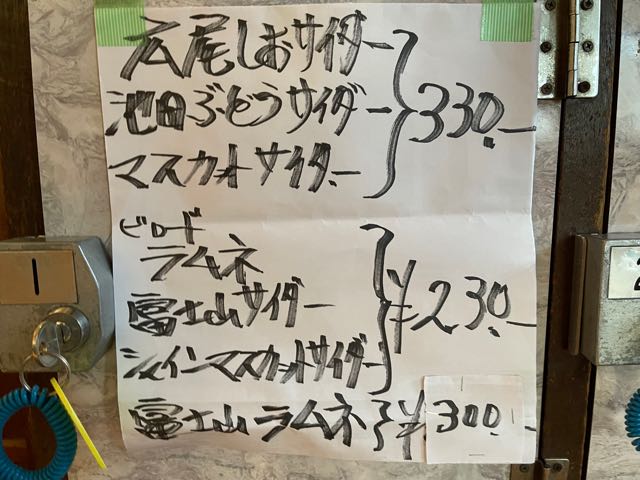 広尾しおサイダー
池田ぶどうサイダー
マスカットサイダー
330.-
ビロード
ラムネ
富士山サイダー
シャインマスカットサイダー
¥230.-
富士山ラムネ ¥300.-
1
2